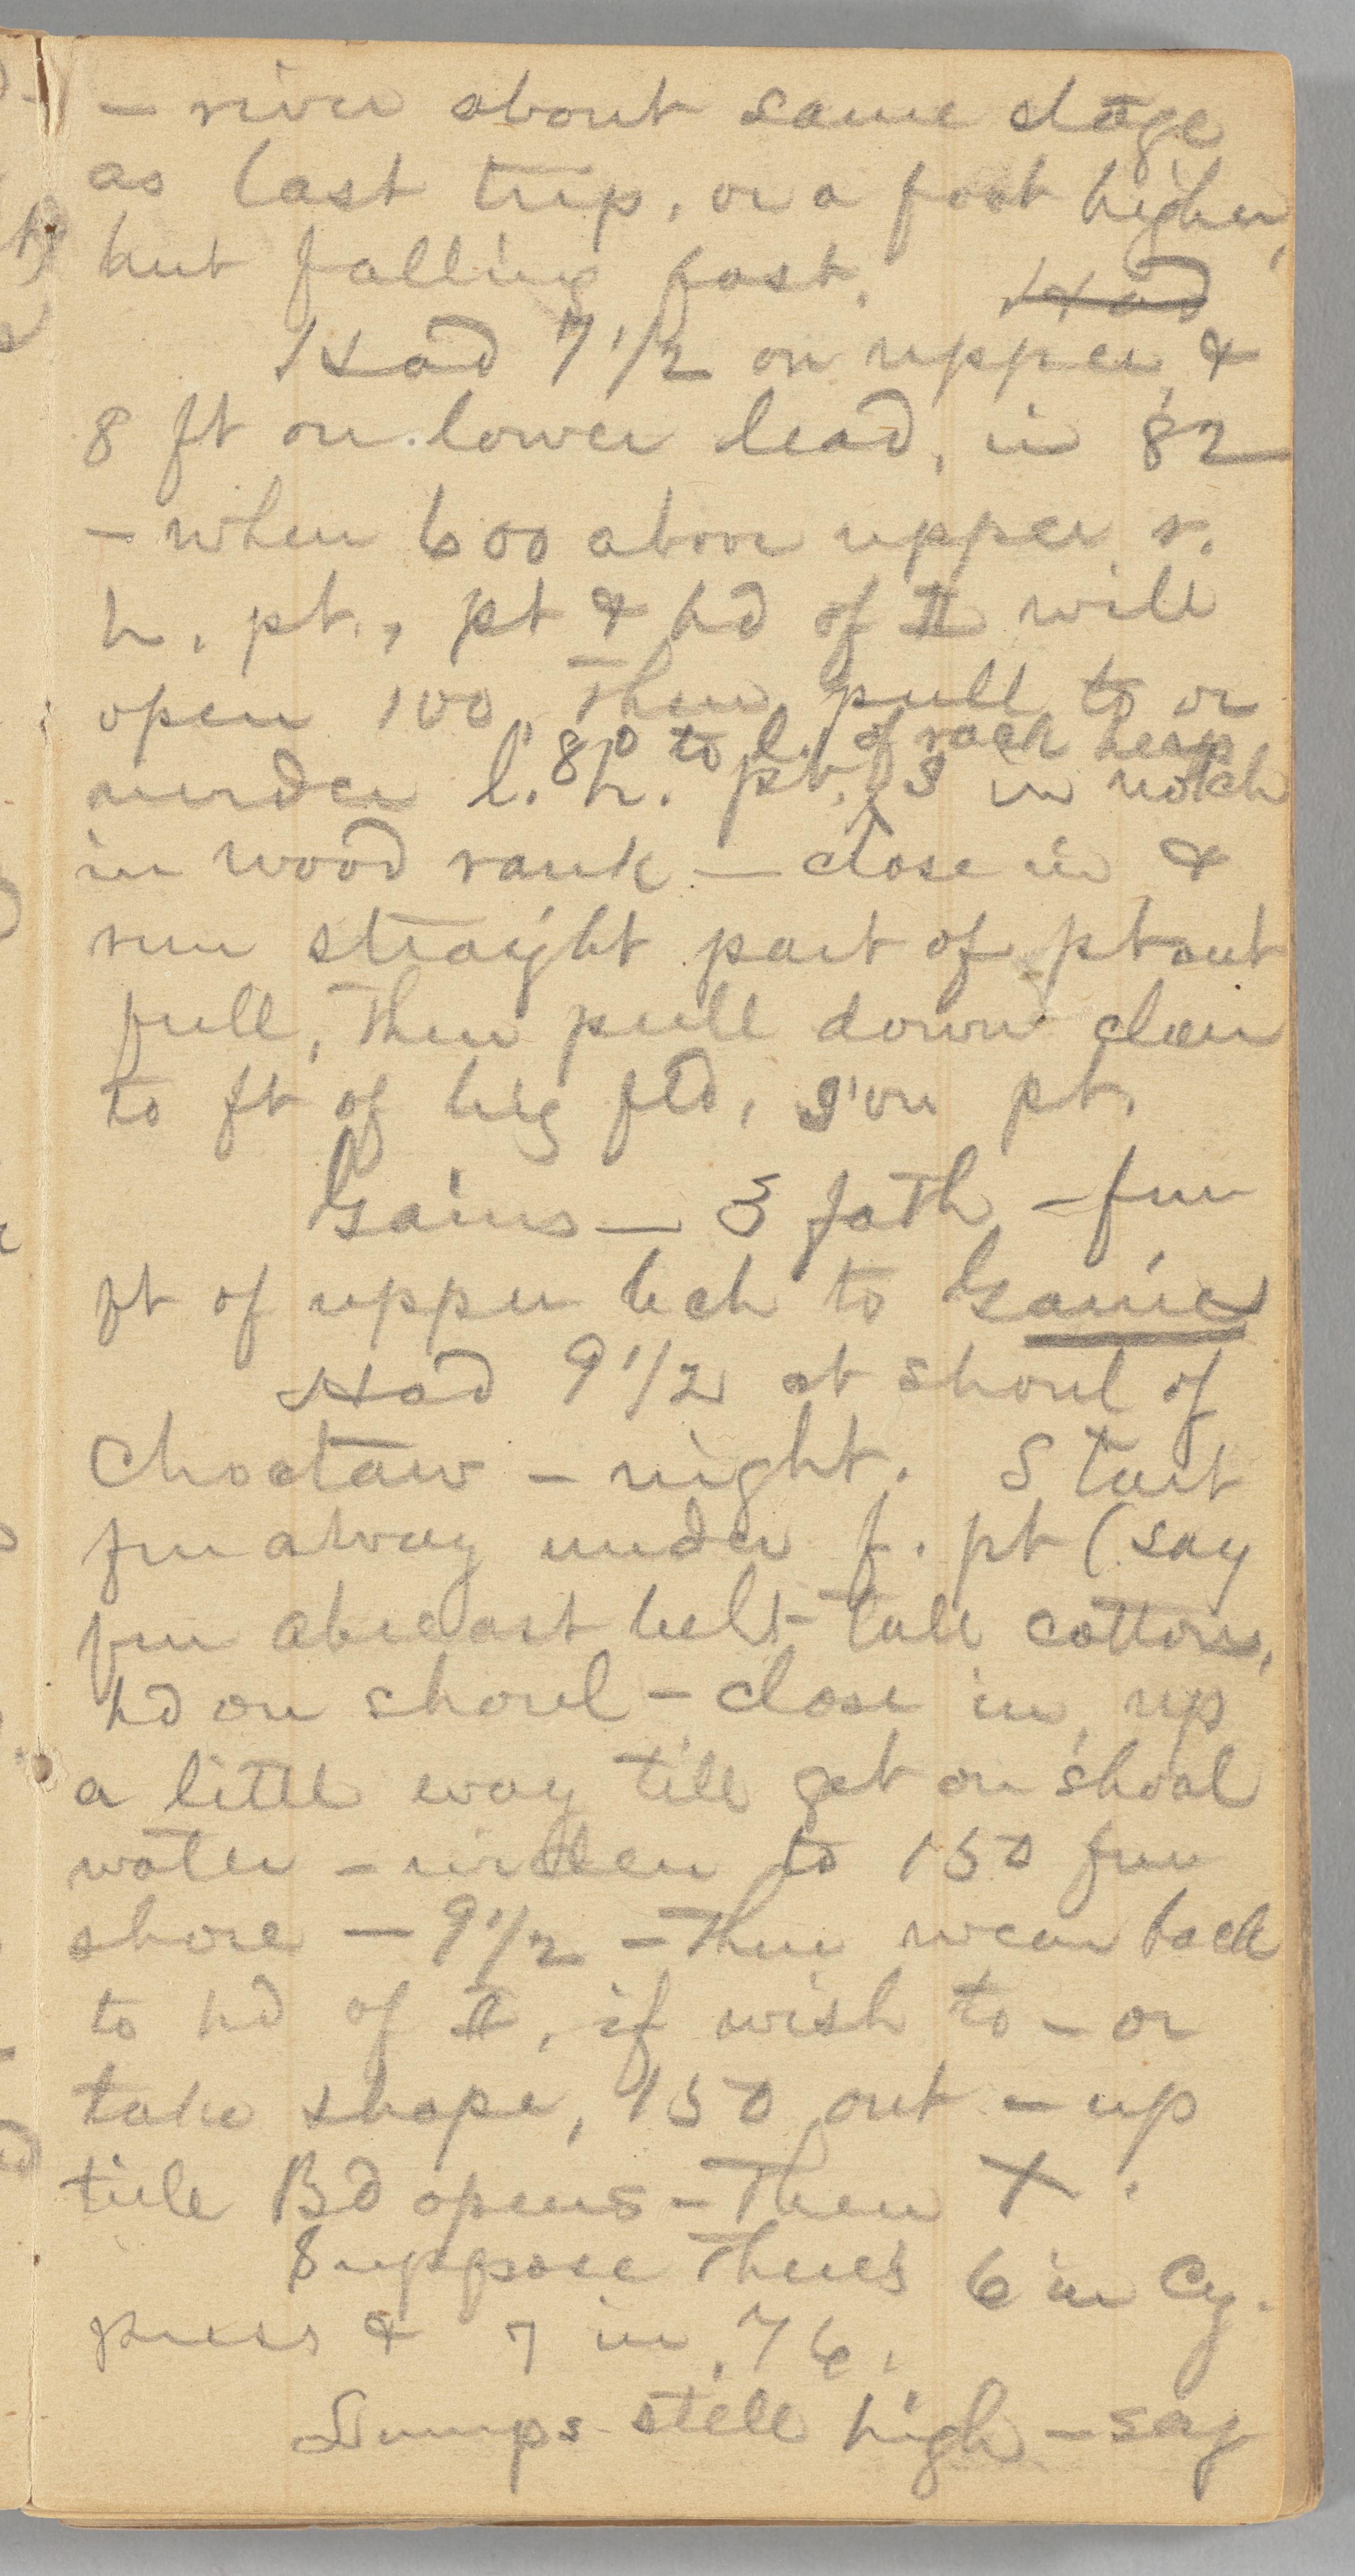 — river about same stage
as last trip, or a foot higher,
but falling fast. Had
Had 7 1/2 on upper, &
8 ft on lower lead, in 82
— when 600 above upper r.
h. pt., pt & hd of II will
open 100. Then pull to or
80 to l. of rack heap
under l. h. pt., S in notch
in wood rank — close in &
run straight part of pt out
full, then pull down clear
to ft of big fld, S on pt.
Gains — 3 fath — fm
ft of upper bch to Gaines
Had 9 1/2 at shoul of
Choctaw – night. Start
fm alway under f. pt (say
fm abreast belt tall cottons,
hd on shoul – close in, up
a little way till get on shoal
water – widen to 150 fm
shore — 9 1/2 – Then wear back
to hd of II, if wish to – or
take shape, 150 out – up
till Bd opens – Then X.
Suppose there's 6 in Cy-
press & 7 in 76.
Dumps still high – say